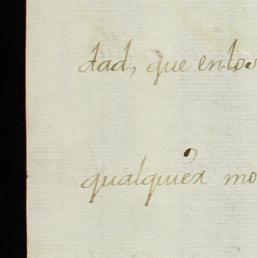 dad, que en los
qualquier mo